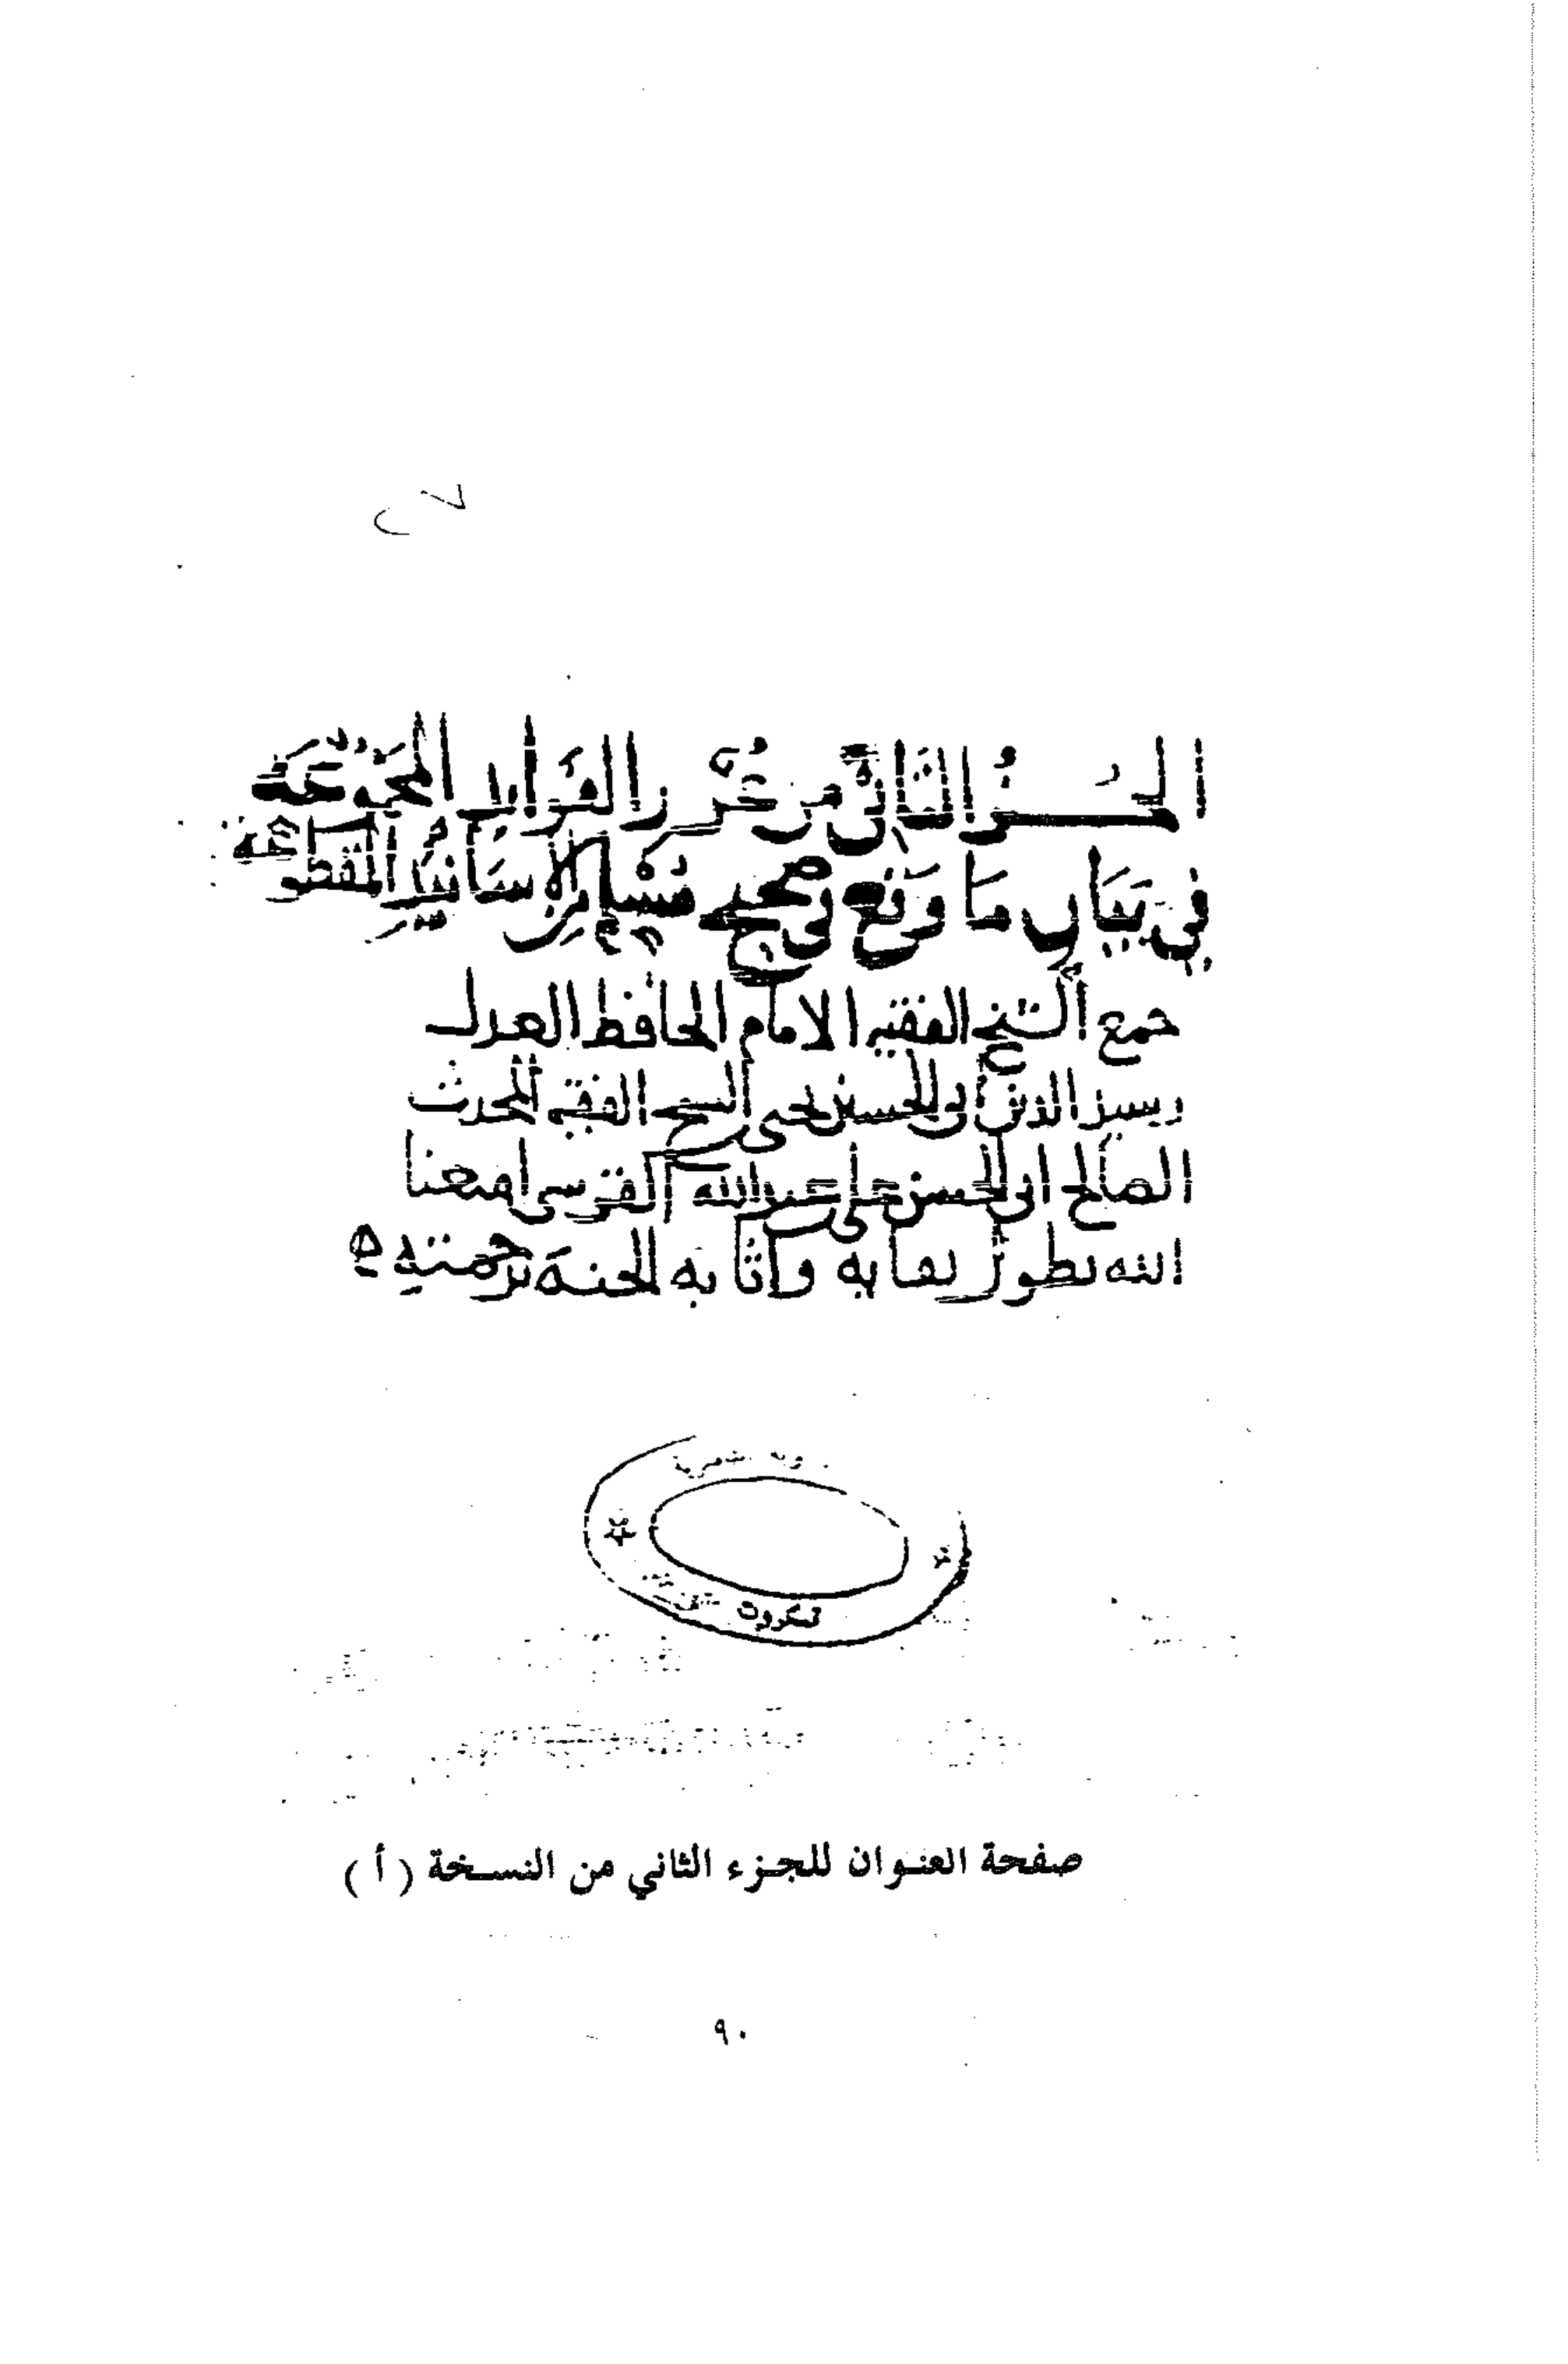 الجزء الثاني من غرر الفوائد المجموعة
في بيان ما وقع في صحيح مسلم من الاسانيد المقطوعة
جمع الشيخ الفقيه الامام الحافظ العدل
رشيد الدين ابي الحسين يحيى بن الشيخ الفقيه المحدث
الصالح ابي الحسن علي بن عبد الله القرشي امتعنا
الله بطول بقايه واثابه الجنة برحمته
صفحة العنوان للجزء الثاني من النسخة ( أ )
٩٠